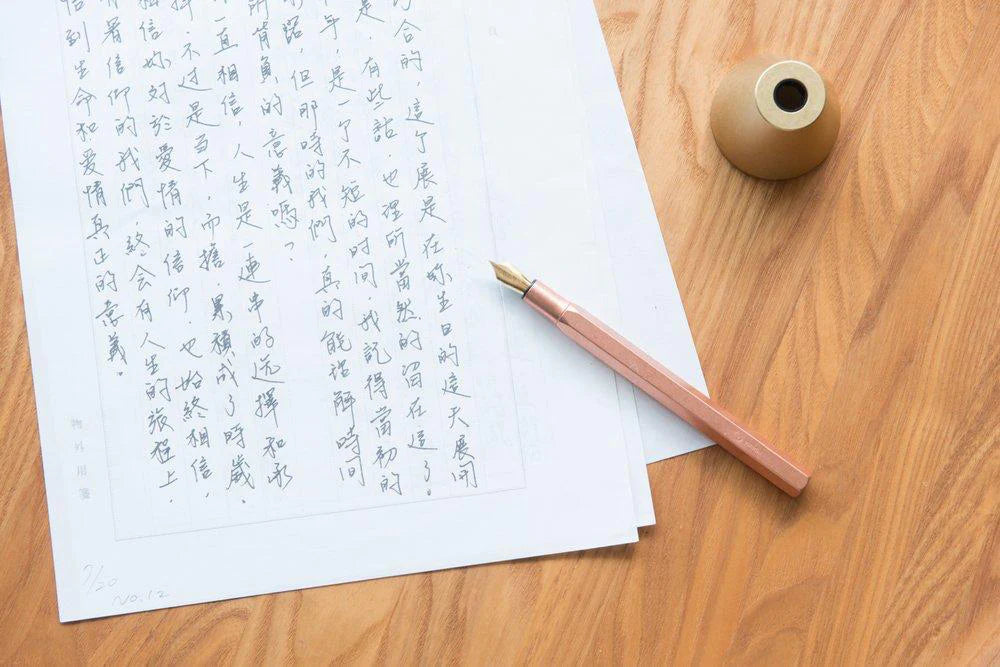 合的，這个展是在妳生日的這天展開
是，有些話，也理所當然的留在這了。
年，是一个不短的时间，我記得當初的
路，但那時的我們，真的能理解時間
所背負的意義嗎？
一直相信，人生是一連串的选擇和承
擇，不过是当下，而擔，累積成了時歲。
相信妳对於愛情的信仰，也始終相信，
有著信仰的我們，終会有人生的旅程上，
到生命和爱情真正的意義。
物外用箋
7/20
No.12